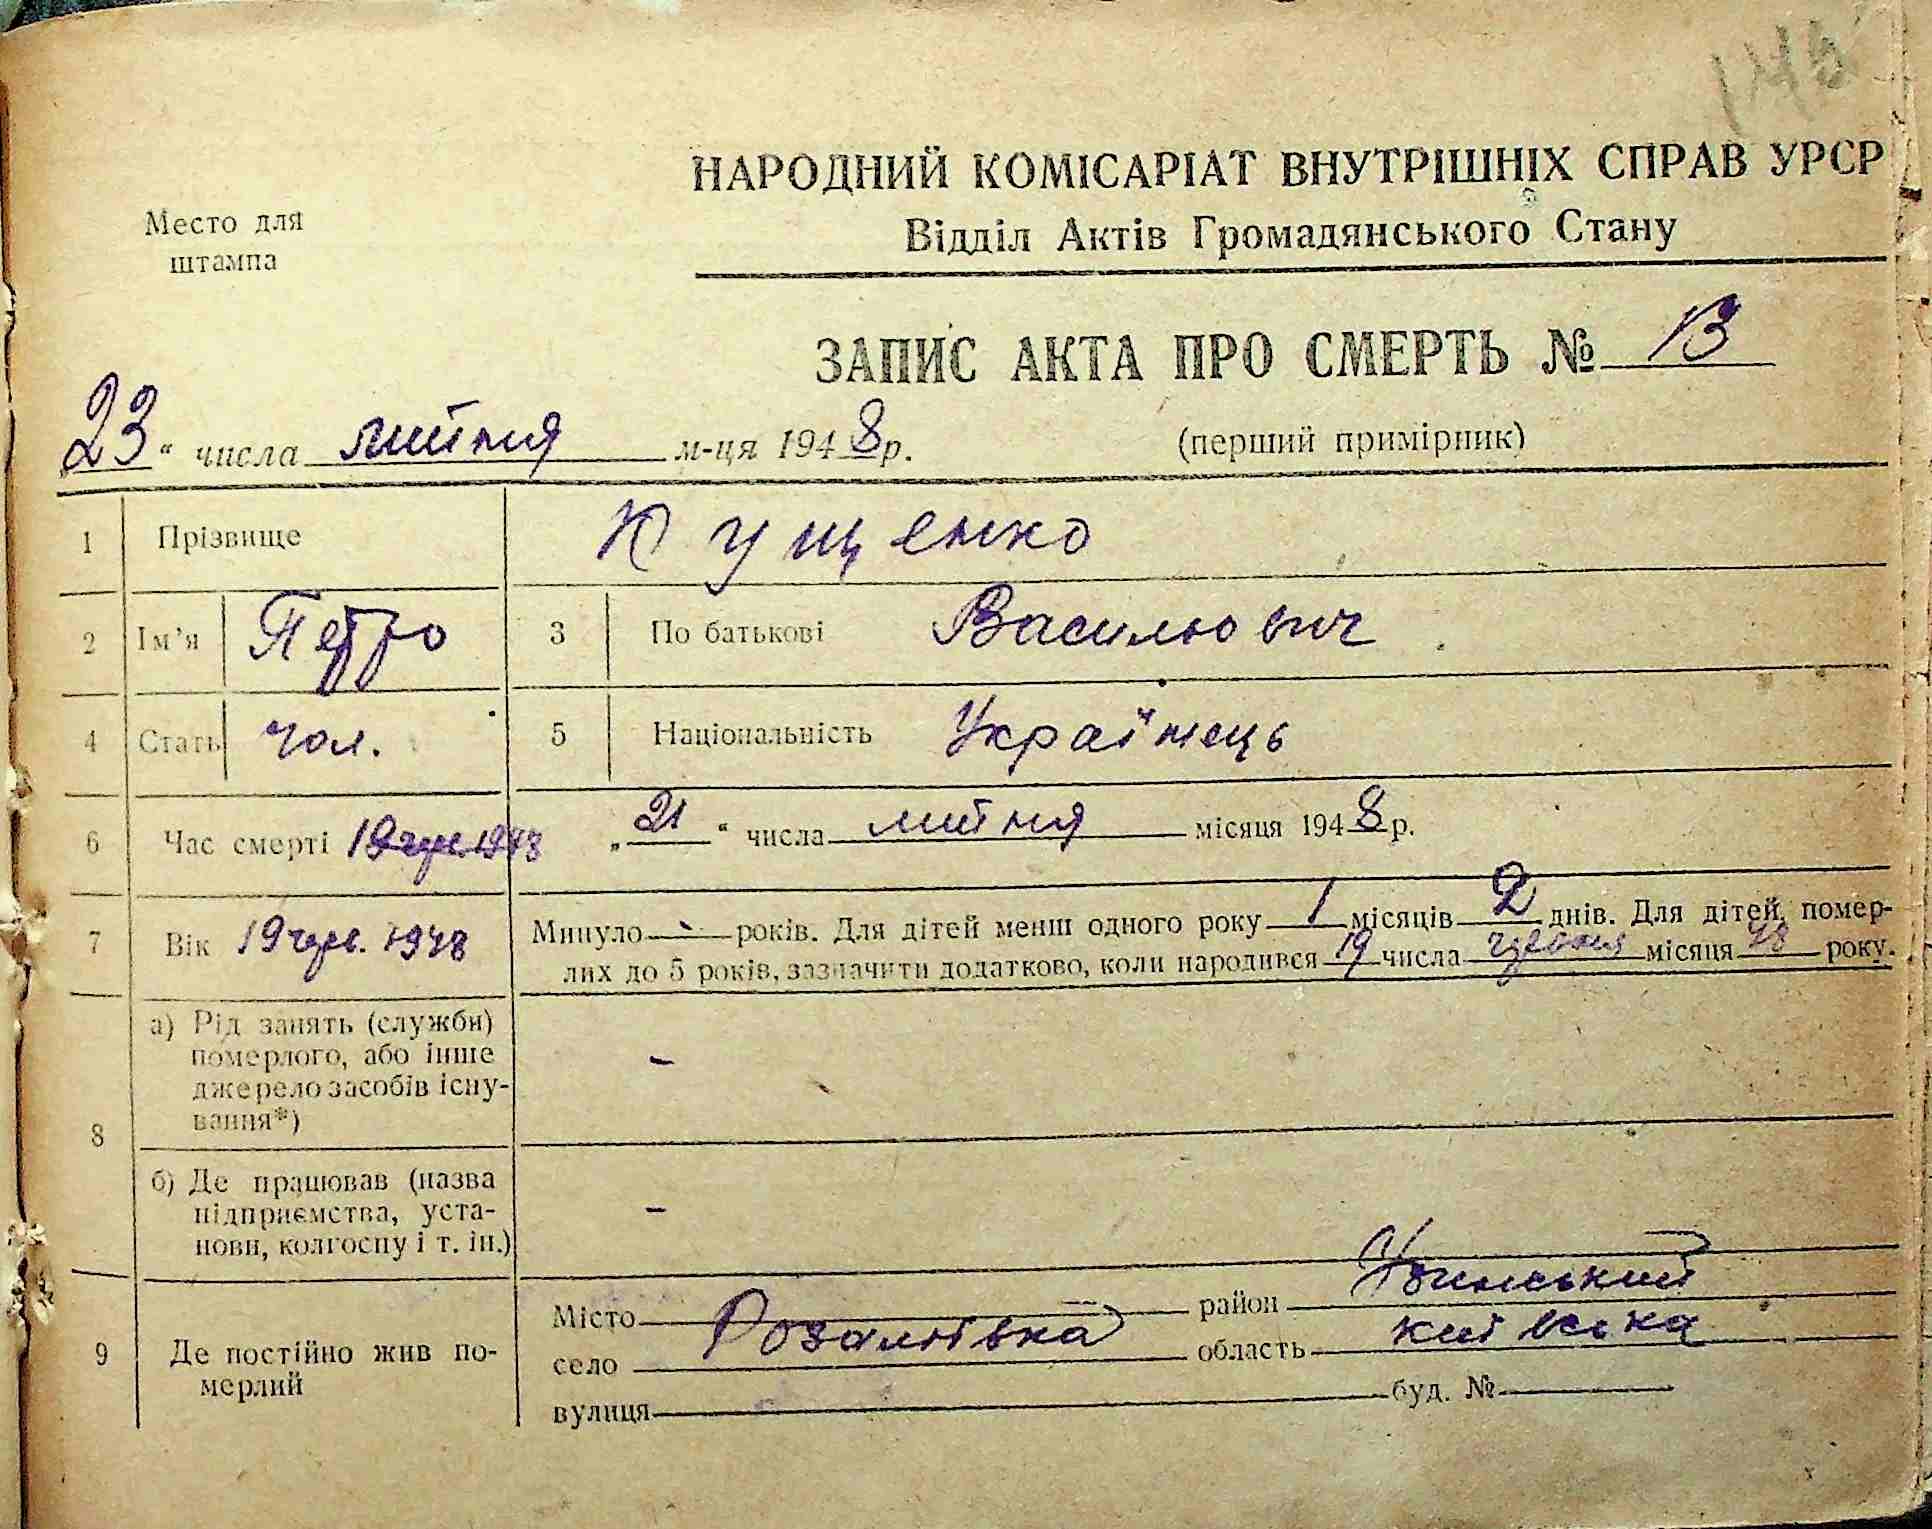 НАРОДНИЙ КОМІСАРІАТ ВНУТРІШНІХ СПРАВ УРСР
Место для
штампа
Відділ Актів Громадянського Стану
ЗАПИС АКТА ПРО СМЕРТЬ № 13
23 " числа липня м-ця 1948 р.
(перший примірник)
1 Прізвище Кущенко
2 Ім'я Петро 3 По батькові Васильович
4 Стать чол. 5 Національність Українець
6 Час смерті 19 чер. 1948 „21" числа липня місяця 1948 р.
7 Вік 19 черв. 1948 Минуло - років. Для дітей менш одного року 1 місяців 2 днів. Для дітей, помер-
лих до 5 років, зазначити додатково, коли народився 19 числа червня місяця 48 року.
8 а) Рід занять (служби)
померлого, або інше
джерело засобів існу-
вання*)
-
б) Де працював (назва
підприємства, уста-
нови, колгоспу і т. ін.)
-
9 Де постійно жив по-
мерлий
Місто район
село Розаліївка область київська
вулиця буд. №